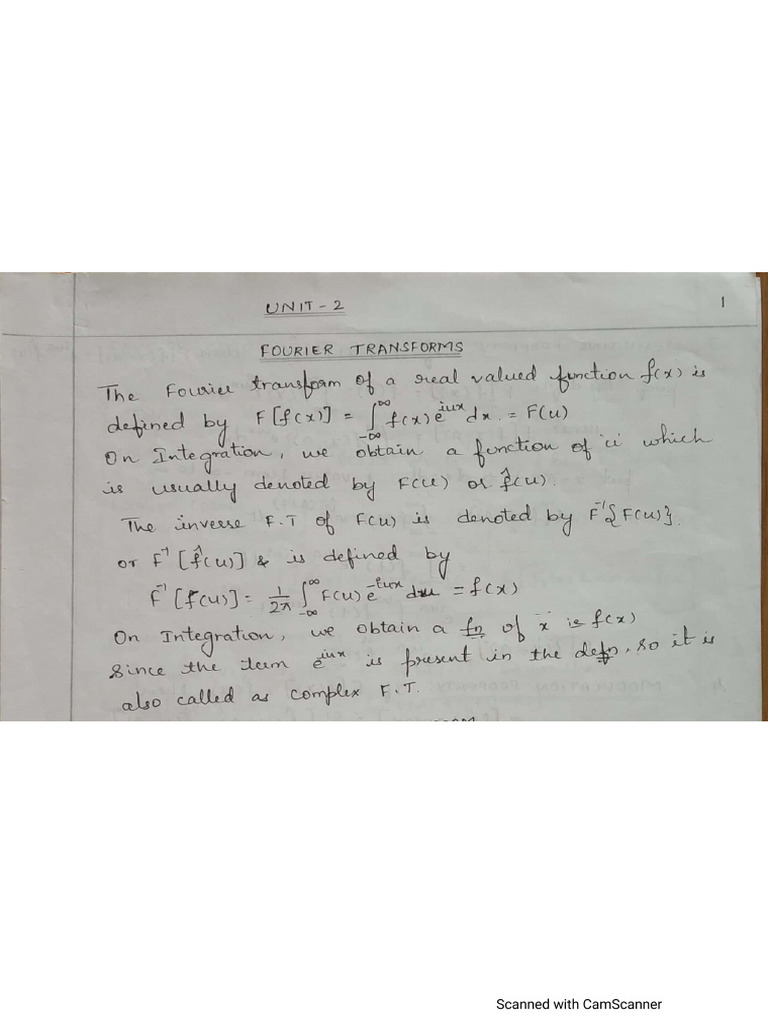 UNIT - 2
1
FOURIER TRANSFORMS
The Fourier transform of a real valued function f(x) is
defined by F[f(x)] = ∫_{-∞}^{∞} f(x) e^{iux} dx. = F(u)
On Integration, we obtain a function of 'u' which
is usually denoted by F(u) or f̂(u).
The inverse F.T of F(u) is denoted by F⁻¹{F(u)}.
or F⁻¹[f̂(u)] & is defined by
F⁻¹[F(u)] = 1/2π ∫_{-∞}^{∞} F(u) e^{-iux} du = f(x)
On Integration, we obtain a fn of x is f(x)
Since the term e^{iux} is present in the defn, so it is
also called as complex F.T.
Scanned with CamScanner